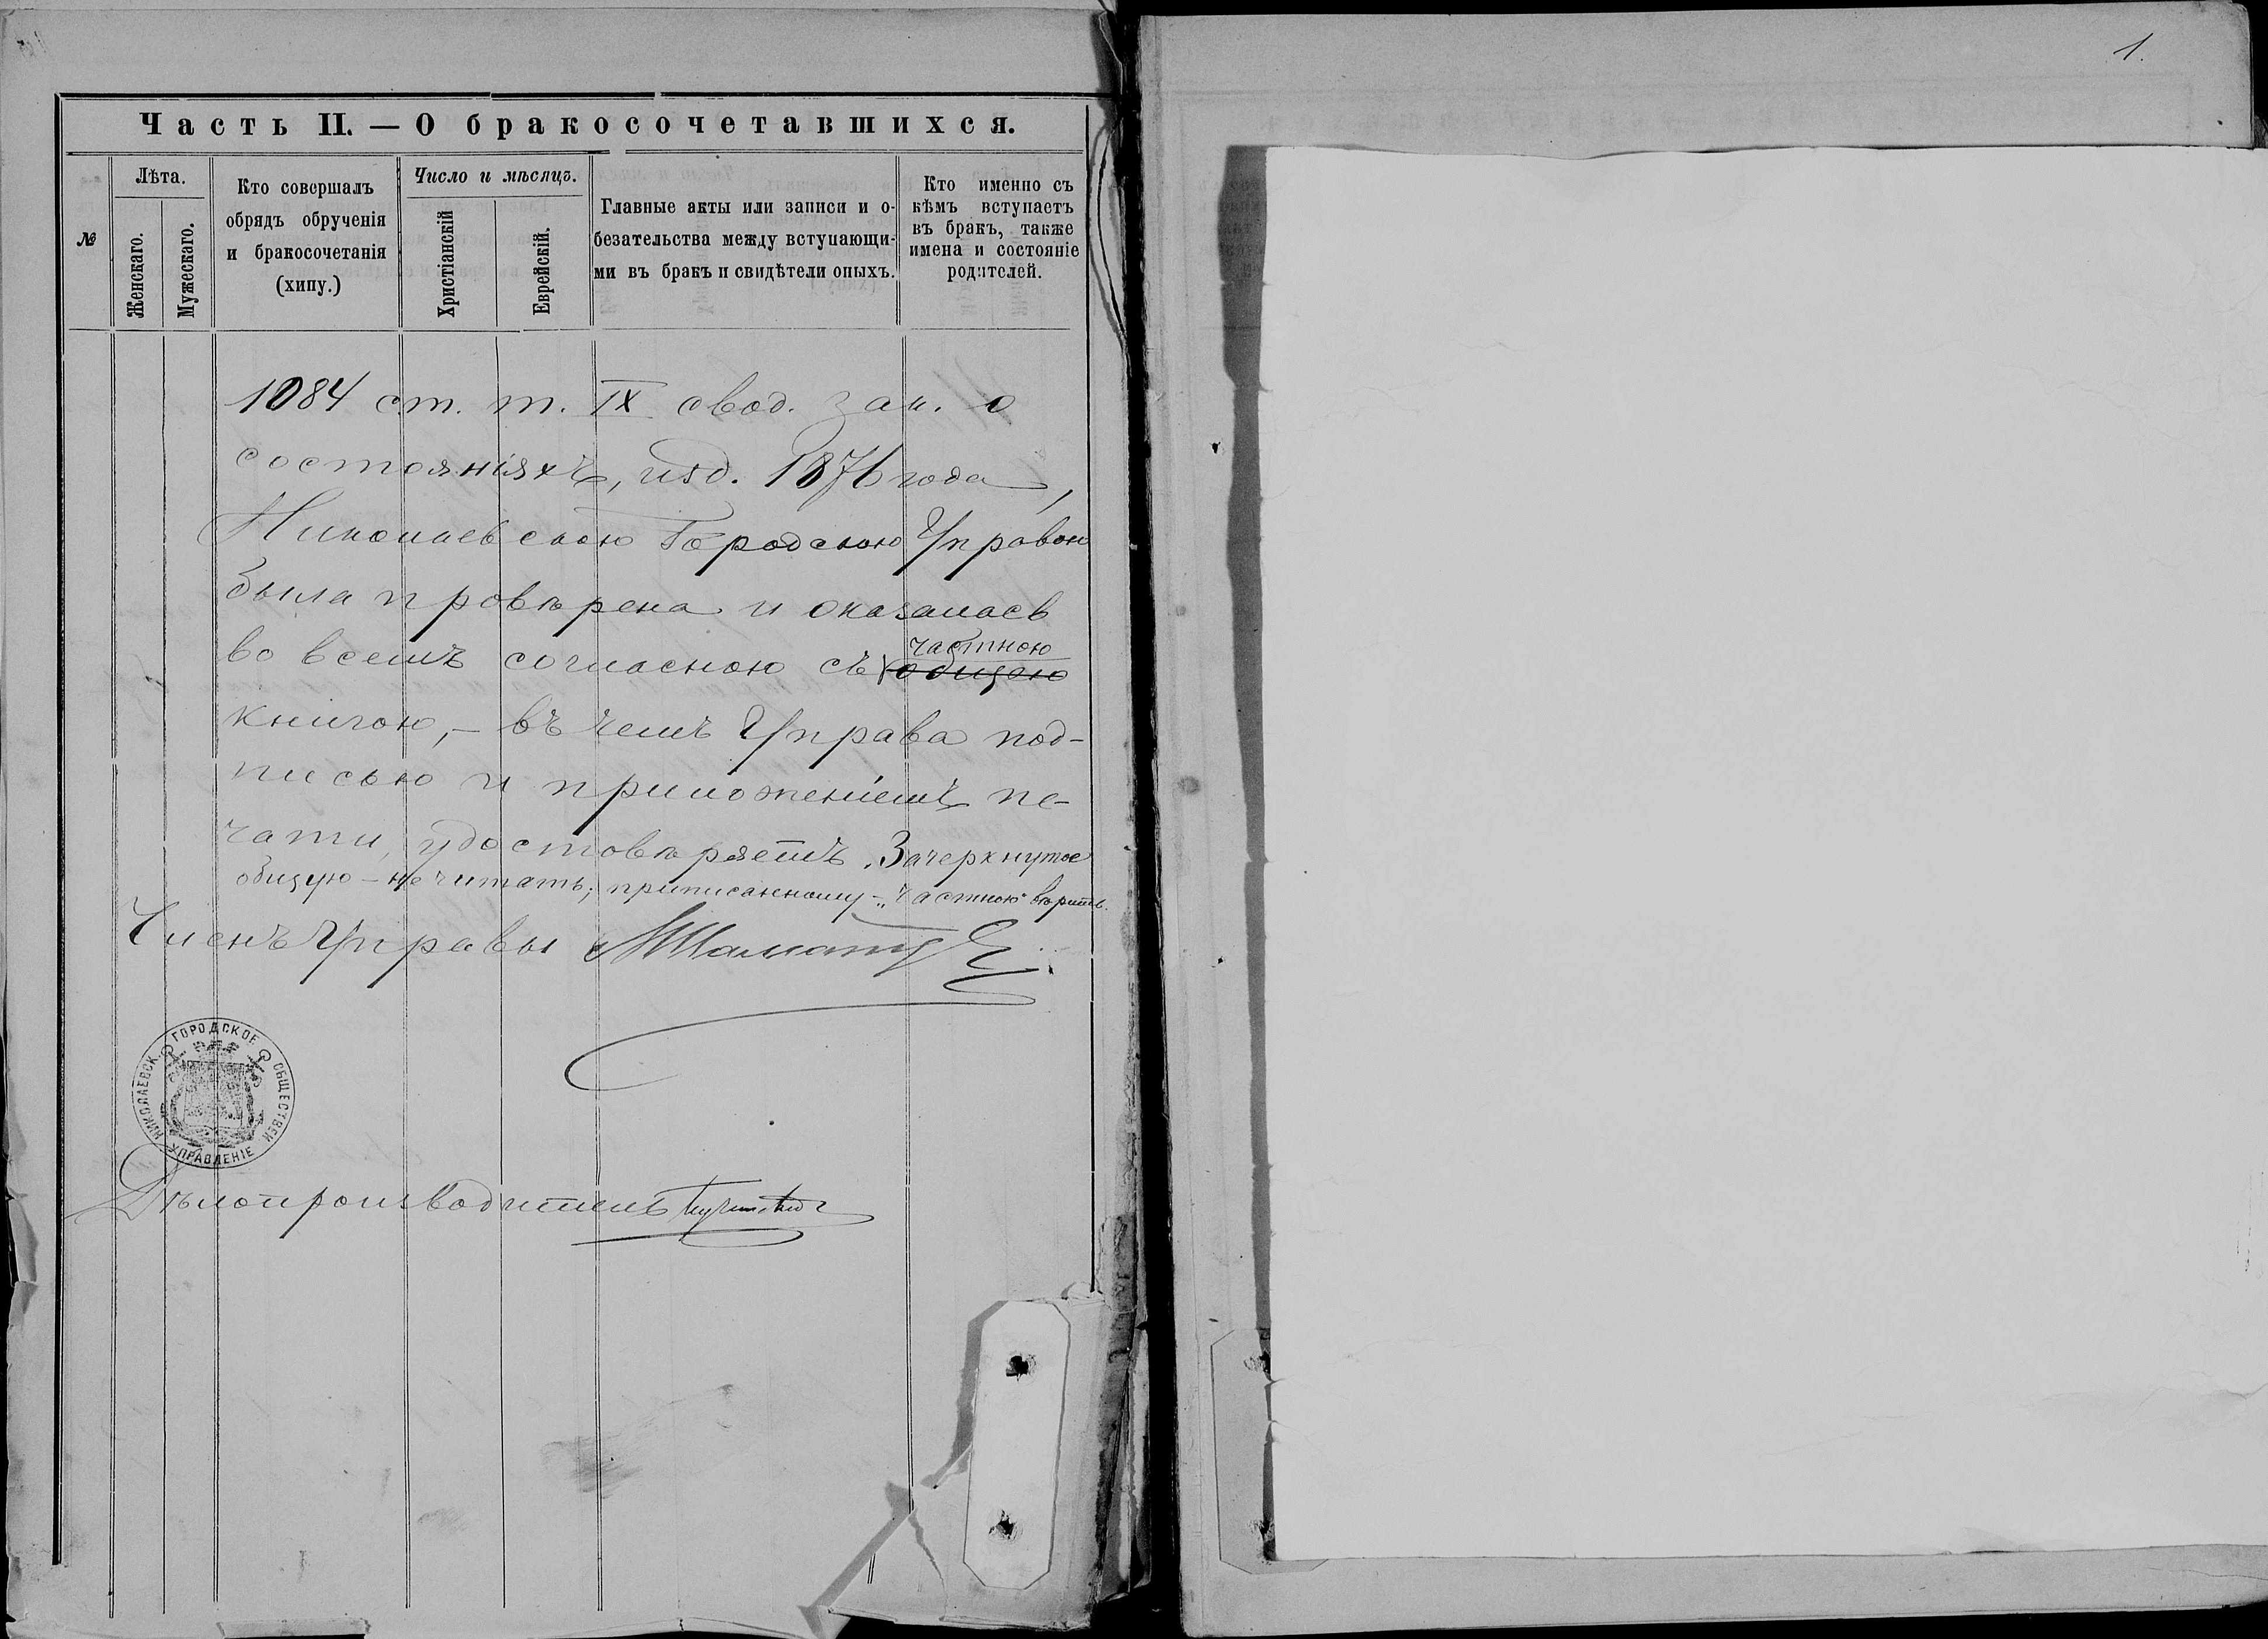 1.
Часть II. — О бракосочетавшихся.
№
Лѣта.
Женскаго.
Мужескаго.
Кто совершалъ
обрядъ обрученія
и бракосочетанія
(хипу.)
Число и мѣсяцъ.
Христіанскій
Еврейскій.
Главные акты или записи и о-
безательства между вступающи-
ми въ бракъ и свидѣтели оныхъ.
Кто именно съ
кѣмъ вступаетъ
въ бракъ, также
имена и состояніе
родителей.
1084 ст. т. IX свод. зак. о
состояніяхъ, изд. 1876 года,
Николаевскою Городскою Управою
была провѣрена и оказалась
частною
во всемъ согласною съ общею
книгою, - въ чемъ Управа под-
писью и приложеніемъ пе-
чати, удостовѣряетъ. Зачеркнутое
общую - не читать; приписанному - „частною" вѣрить.
Членъ Управы
НИКОЛАЕВСК. ГОРОДСКОЕ ОБЩЕСТВЕН.
УПРАВЛЕНІЕ
Дѣлопроизводитель